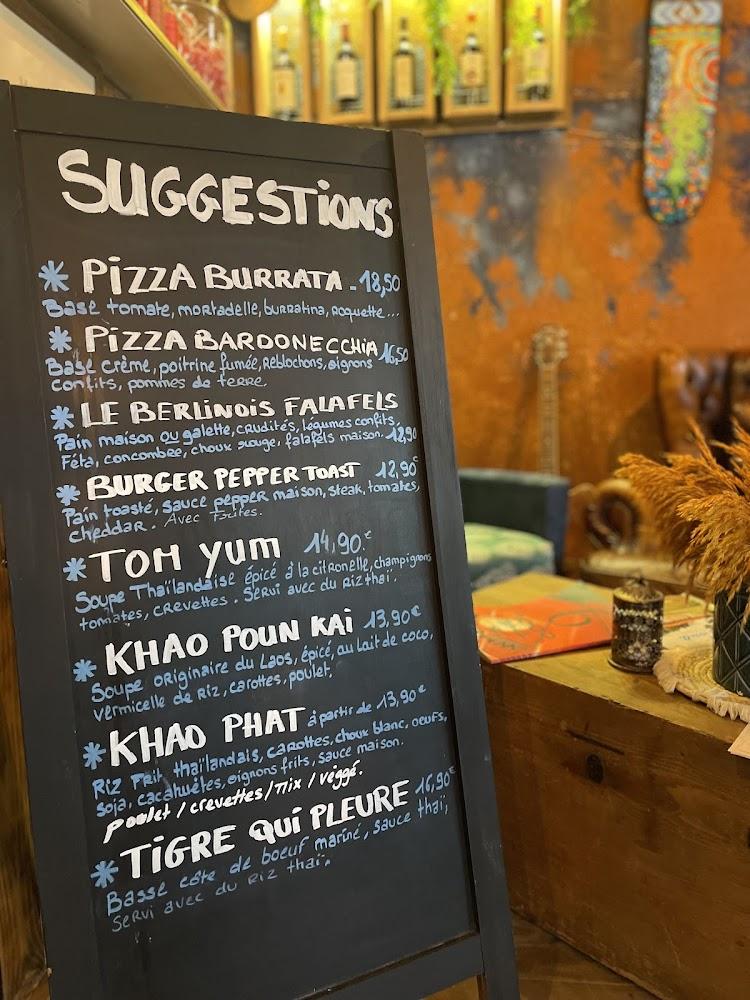 SUGGESTIONS
* PIZZA BURRATA - 18,50
Base tomate, mortadelle, burratina, roquette...
* PIZZA BARDONECCHIA 16,50
Base crème, poitrine fumée, Reblochons, oignons
confits, pommes de terre.
* LE BERLINOIS FALAFELS
Pain maison ou galette, crudités, légumes confits,
Féta, concombre, choux rouge, falafels maison. 12,90
* BURGER PEPPER TOAST 12,90€
Pain toasté, sauce pepper maison, steak, tomates,
cheddar. Avec frites.
* TOM YUM 14,90.€
Soupe Thaïlandaise épicé à la citronelle, champignons
tomates, crevettes. Servi avec du riz thaï.
* KHAO POUN KAI 13,90€
Soupe originaire du Laos, épicé, au lait de coco,
vermicelle de riz, carottes, poulet.
* KHAO PHAT à partir de 13,90€
Riz frit thaïlandais, carottes, choux blanc, oeufs,
soja, cacahuètes, oignons frits, sauce maison.
Poulet / crevettes / mix / véggé.
* TIGRE QUI PLEURE 16,90€
Basse côte de boeuf mariné, sauce thaï,
servi avec du riz thaï.